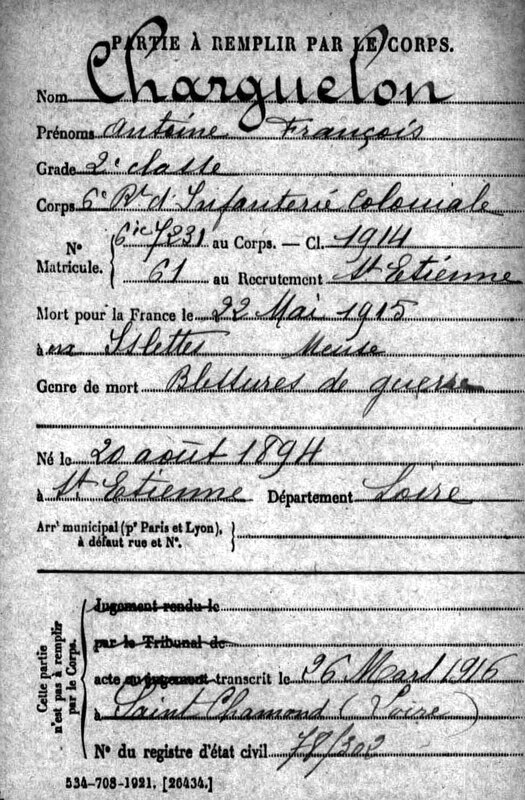 PARTIE À REMPLIR PAR LE CORPS.
Nom Charguelon
Prénoms Antoine François
Grade 2e classe
Corps 6e Rt d'Infanterie Coloniale
N° Matricule. { 6ic 7231 au Corps. — Cl. 1914
61 au Recrutement St Etienne
Mort pour la France le 22 Mai 1915
à aux Islettes Meuse
Genre de mort Blessures de guerre
Né le 20 août 1894
à St Etienne Département Loire
Arrt municipal (pr Paris et Lyon), à défaut rue et N°. }
Cette partie n'est pas à remplir par le Corps.
Jugement rendu le
par le Tribunal de
acte ou jugement transcrit le 26 Mars 1916
à Saint Chamond (Loire)
N° du registre d'état civil 78/302
534-708-1921. [26434.]